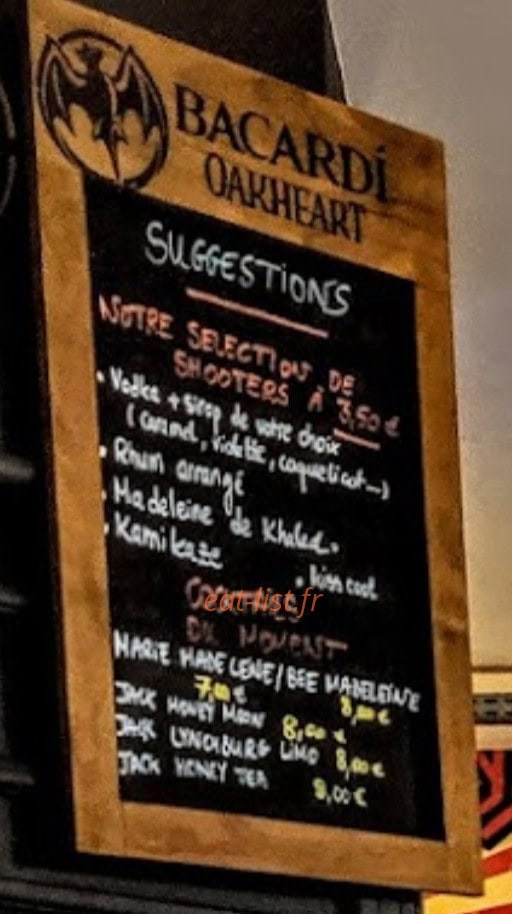 BACARDÍ
OAKHEART
SUGGESTIONS
NOTRE SELECTION DE
SHOOTERS À 3,50 €
• Vodka + sirop de votre choix
(caramel, violette, coquelicot...)
• Rhum arrangé
• Madeleine de Khaled.
• Kamikaze
• kiss cool
COCKTAILS
eat-list.fr
DU MOMENT
MARIE MADELENE/BEE MADELEINE
7,00 € 8,00 €
JACK HONEY MOON 8,00 €
JACK LYNCHBURG LIMO 8,00 €
JACK HONEY TEA 8,00 €